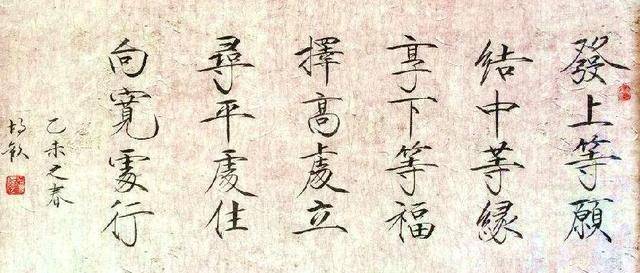 發上等願
結中等緣
享下等福
擇高處立
尋平處住
向寬處行
乙未之春